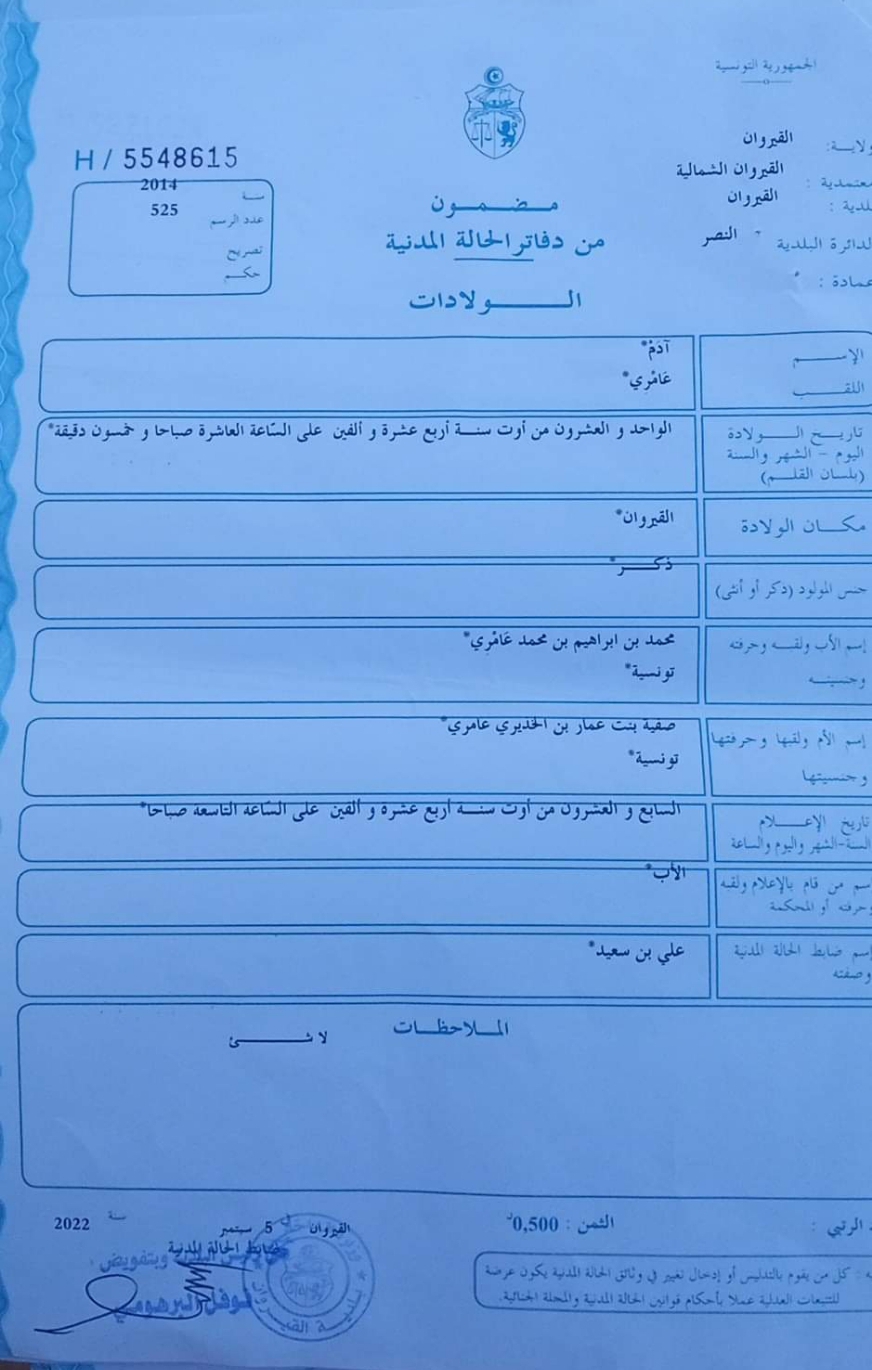 الجمهورية التونسية
ولايـــة: القيروان
معتمدية : القيروان الشمالية
بلدية : القيروان
الدائرة البلدية - النصر
عمادة :
H / 5548615
سنة 2014
عدد الرسم 525
تصريح
حكم
مضمون
من دفاتر الحالة المدنية
الولادات
الإسم آدَمْ*
اللقب عَامْرِي*
تاريخ الولادة
اليوم – الشهر والسنة
(بلسان القلم)
الواحد و العشرون من أوت سنة أربع عشرة و ألفين على السّاعة العاشرة صباحا و خمسون دقيقة*
مكان الولادة القيروان*
جنس المولود (ذكر أو أنثى) ذكر*
إسم الأب ولقبه وحرفته
وجنسيته
محمد بن ابراهيم بن محمد عَامْرِي*
تونسية*
إسم الأم ولقبها وحرفتها
وجنسيتها
صفية بنت عمار بن الخديري عامري*
تونسية*
تاريخ الإعلام
السنة-الشهر واليوم والساعة
السابع و العشرون من أوت سنة أربع عشرة و ألفين على السّاعة التاسعة صباحا*
إسم من قام بالإعلام ولقبه
وحرفته أو المحكمة
الأب*
إسم ضابط الحالة المدنية
وصفته
علي بن سعيد*
الملاحظات
لا شئ
الرتبي :
الثمن : 0,500د
القيروان في 5 سبتمبر سنة 2022
ضابط الحالة المدنية
وبتفويض
نوفل البرهومي
بلدية القيروان
: كل من يقوم بالتدليس أو إدخال تغيير في وثائق الحالة المدنية يكون عرضة
للتتبعات العدلية عملا بأحكام قوانين الحالة المدنية والمجلة الجنائية.